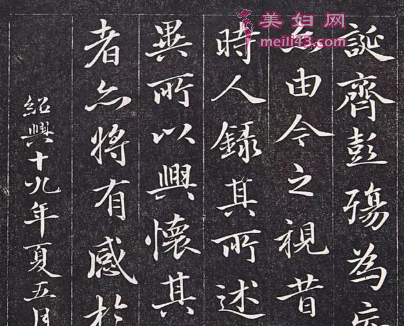 美妇网
meili43.com
誕齊彭殤為妄
亦由今之視昔
時人錄其所述
異所以興懷其
者亦將有感於
紹興十九年夏五月